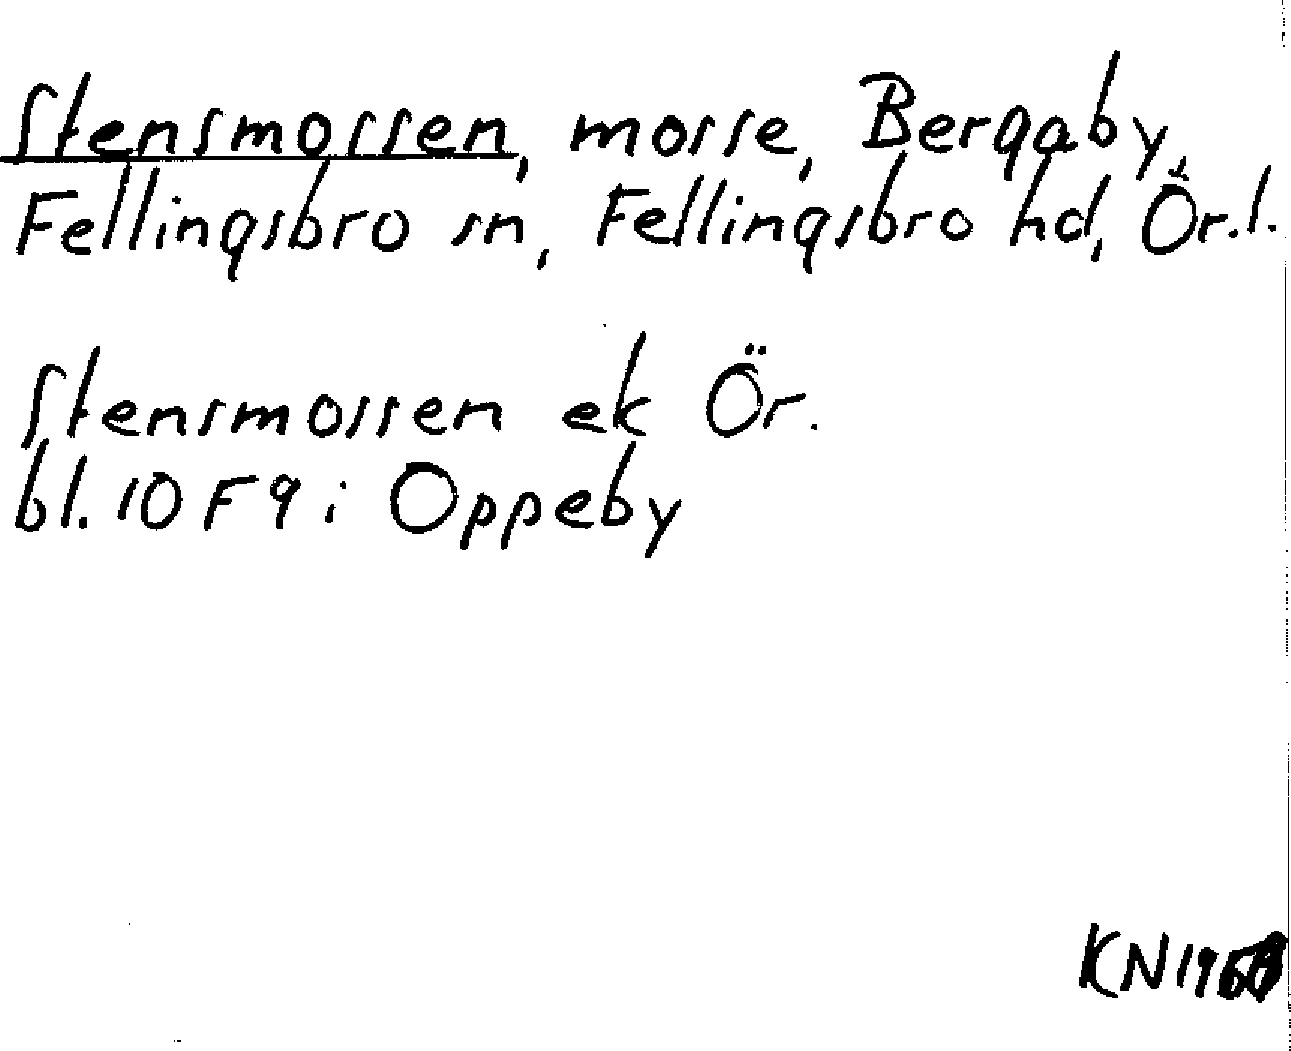 Stensmossen, mosse, Bergaby,
Fellingsbro sn, Fellingsbro hd, Ör.l.
Stensmossen ek Ör.
bl. 10 F 9 i Oppeby
KN